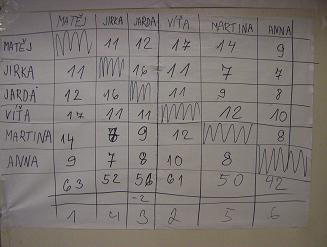 MATĚJ JIRKA JARDA VÍŤA MARTINA ANNA
MATĚJ 11 12 17 14 9
JIRKA 11 16 11 7 7
JARDA 12 16 11 9 8
VÍŤA 17 11 11 12 10
MARTINA 14 9 12 8
ANNA 9 7 8 10 8
63 52 61 50 42
-2
1 4 3 2 5 6